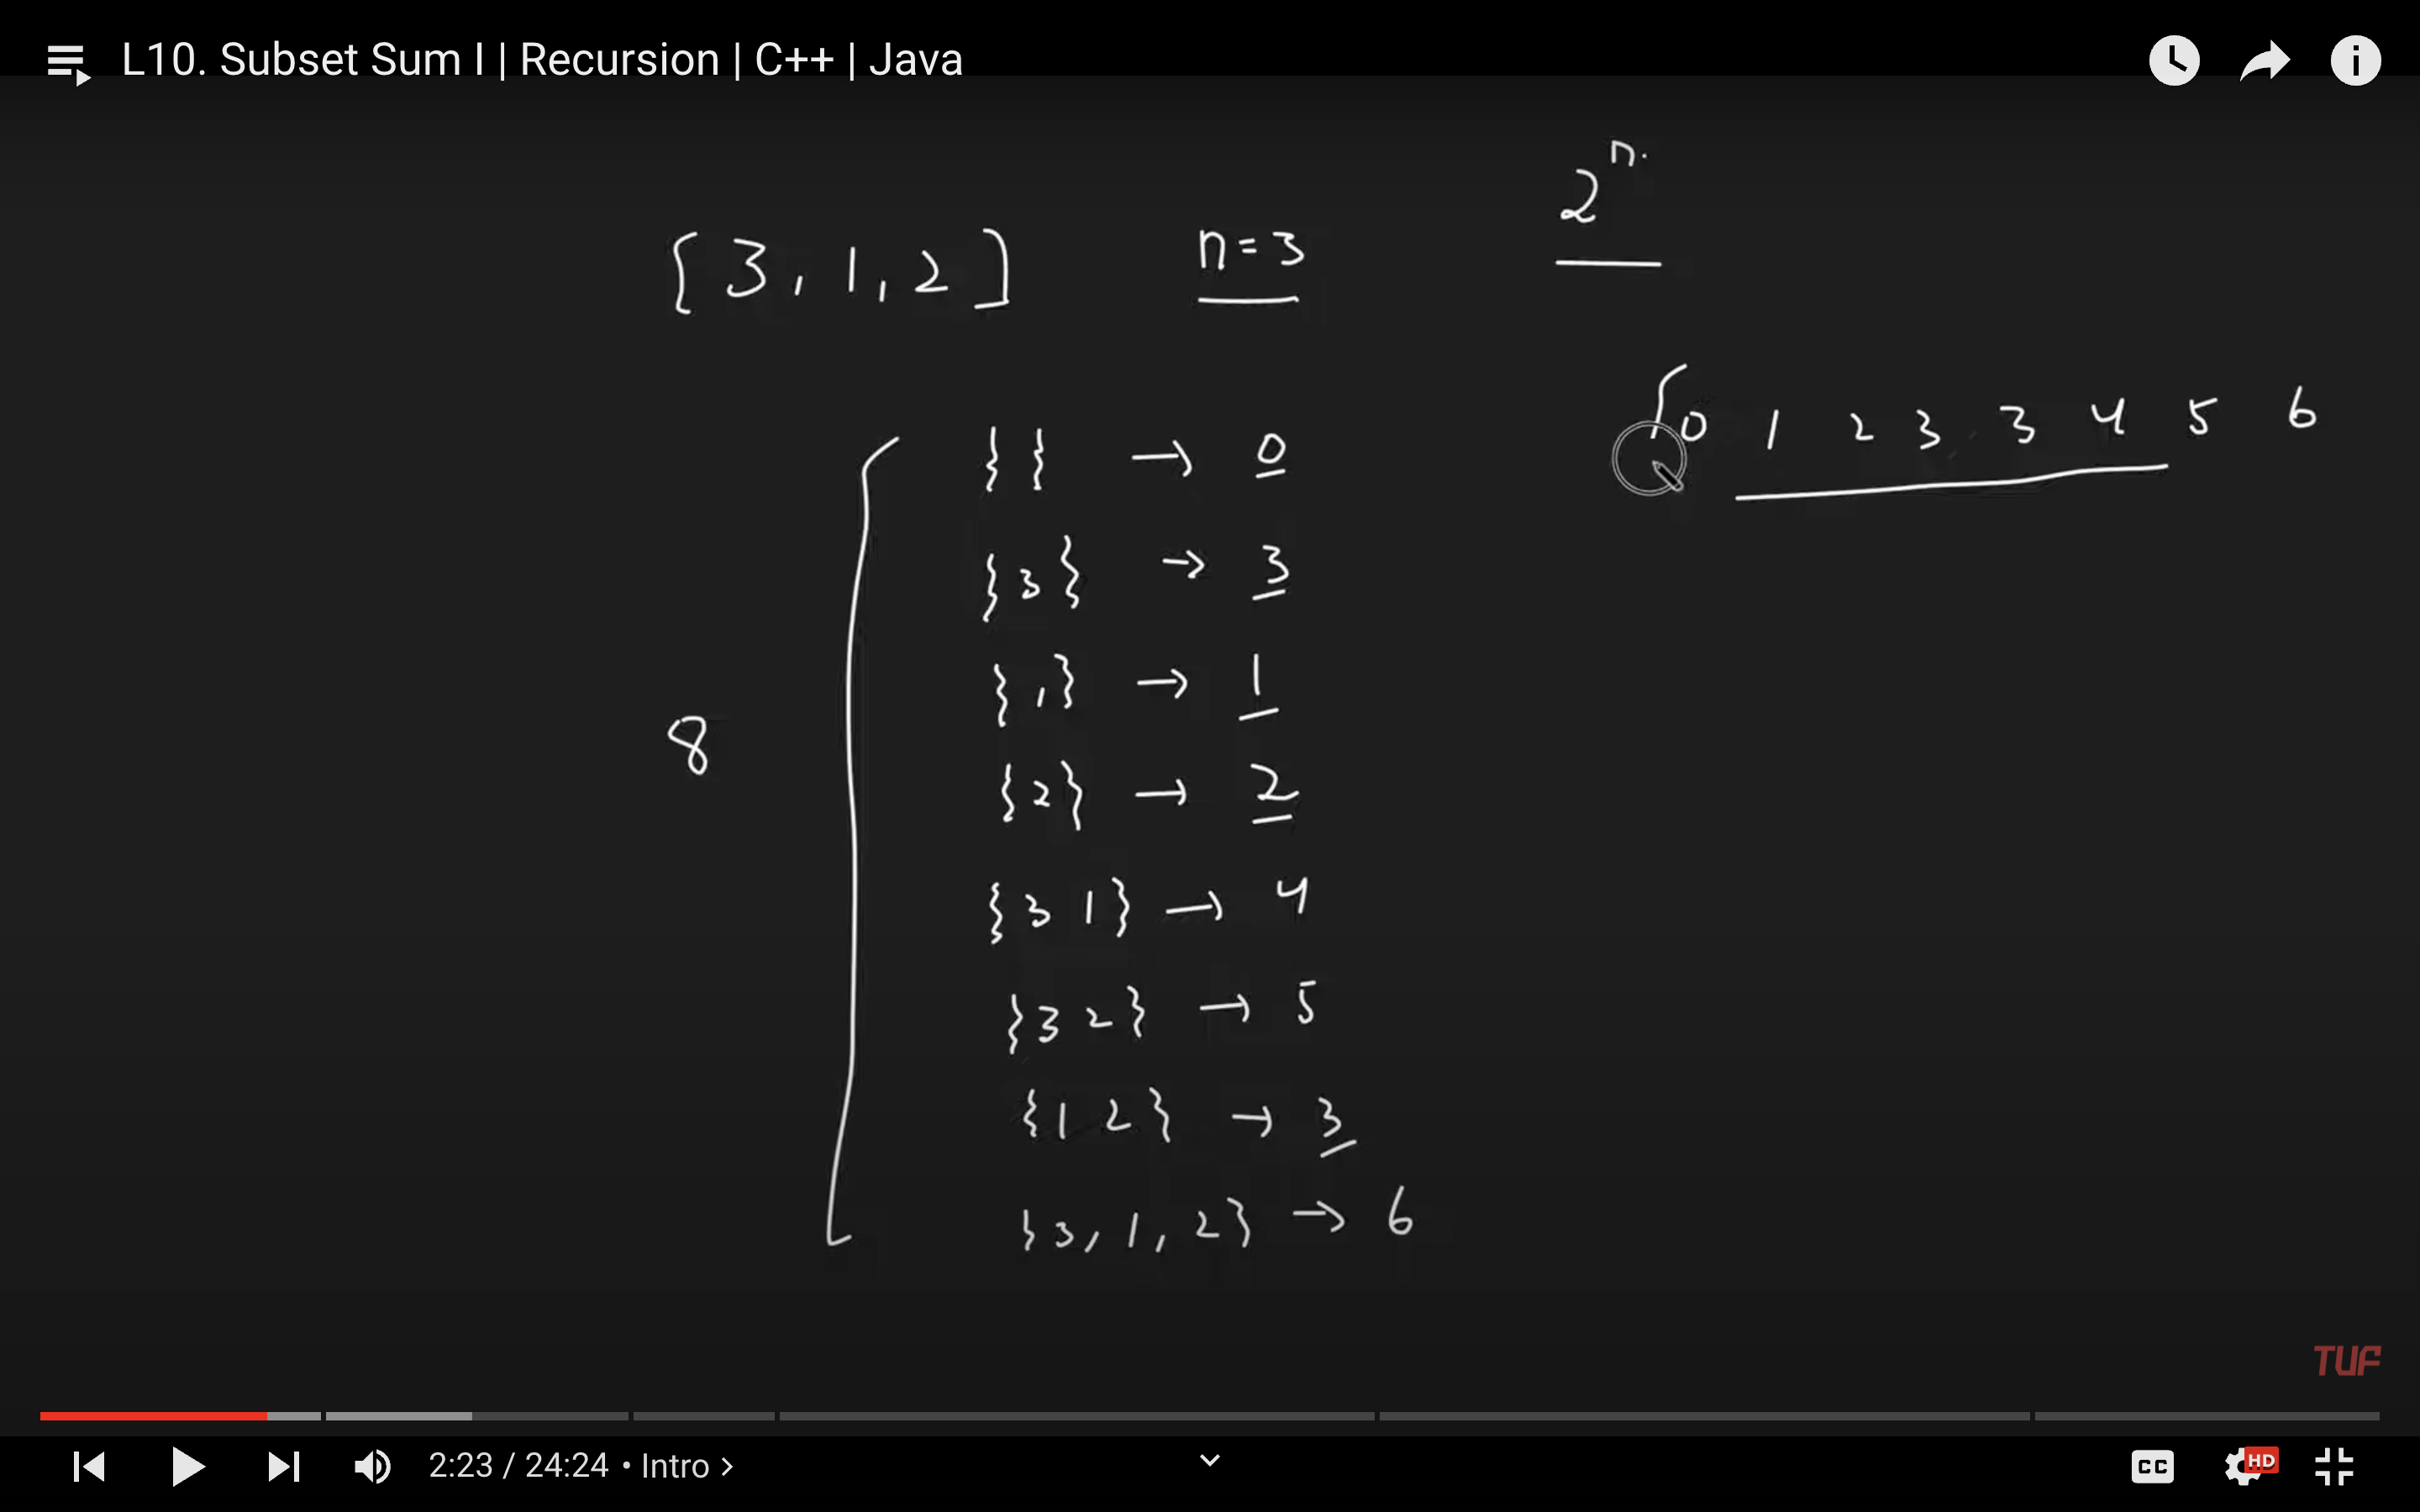 L10. Subset Sum I | Recursion | C++ | Java
2ⁿ.
[3, 1, 2] n=3
{0 1 2 3 3 4 5 6
{} → 0
{3} → 3
{1} → 1
8
{2} → 2
{3 1} → 4
{3 2} → 5
{1 2} → 3
{3, 1, 2} → 6
TUF
2:23 / 24:24 • Intro >
CC HD